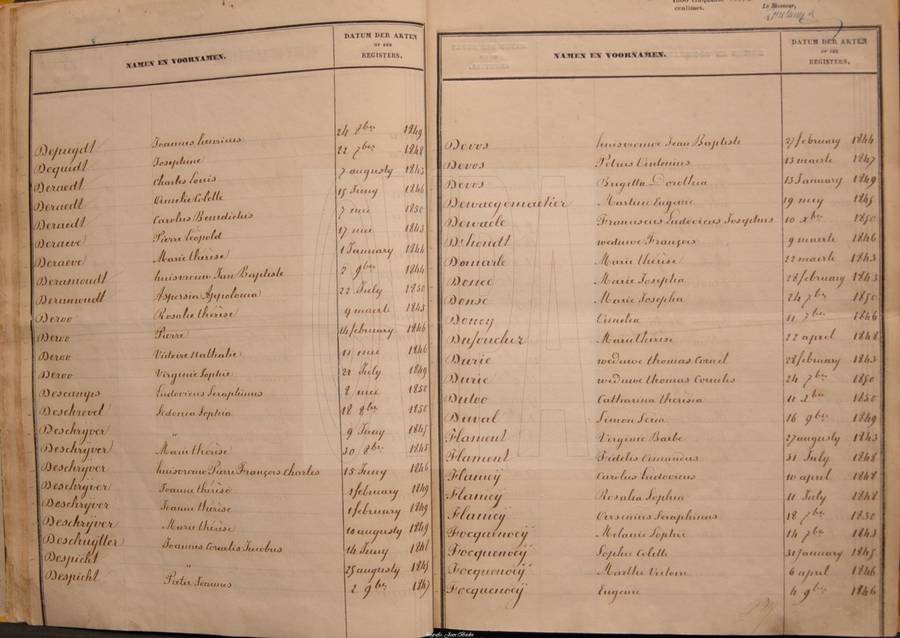 NAMEN EN VOORNAMEN. DATUM DER AKTEN OF DER REGISTERS.
Depuydt Joannes 24 7bre 1849
Dequidt Josephine 22 7bre 1848
Deraedt Charles Louis 7 augusty 1845
Deraedt Colette 15 Juny 1846
Deraedt Carolus Benedictus 7 mei 1850
Deraeve Pierre Léopold 17 mei 1843
Deraeve Marie thérèse 1 January 1844
Deramoudt huisvrouw Jan Baptiste 2 9bre 1844
Deramoudt Appolonia 22 July 1850
Deroo Rosalie thérèse 9 maerte 1843
Deroo Pierre 14 february 1846
Deroo Victoire Nathalie 11 mei 1846
Deroo Virginie Sophie 21 July 1849
Descamps Ludovicus Seraphinus 8 mei 1850
Deschrevel Sedonia Sophia 18 9bre 1850
Deschrijver " 9 Juny 1845
Deschrijver Marie thérèse 30 8bre 1845
Deschrijver huisvrouw Pierre François Charles 15 Juny 1846
Deschrijver Joanne thérèse 1 february 1849
Deschrijver Joanne thérèse 1 february 1849
Deschrijver Marie thérèse 10 augusty 1849
Deschuytter Joannes Cornelis Jacobus 14 Juny
Despicht " 25 augusty 1845
Despicht Pieter Joannes 2 9bre 1847
centimes. Le Receveur,
NAMEN EN VOORNAMEN. DATUM DER AKTEN OF DER REGISTERS.
Devos huisvrouw Jean Baptiste 27 february 1844
Devos Petrus 15 maerte 1847
Devos Brigitta Dorothea 15 January 1849
Dewaegemaeker Martine Eugenie 19 mey 1845
Dewaele Franciscus Ludovicus Josephus 10 xbre 1850
D'hondt weduwe François 9 maerte 1846
Domarle Marie thérèse 22 maerte 1843
Donce Marie Josepha 28 february 1843
Donse Marie Josepha 24 7bre 1850
Doucy 11 7bre 1846
Dufoucher Marie thérèse 22 april 1848
Durie weduwe thomas Cornil 28 february 1843
Durie weduwe thomas Cornelis 24 7bre 1850
Dutoo Catharina theresia 11 xbre 1850
Duval Simon 16 9bre 1849
Flament Virginie Barbe 27 augusty 1843
Flament Fidelis 31 July 1848
Flamey Carolus Ludovicus 10 april 1848
Flamey Rosalia Sophia 11 July 1848
Flamey Seraphinus 18 7bre 1850
Focquenoeij Melanie Sophie 14 7bre 1843
Focquenoeij Sophie Colette 31 January 1845
Focquenoeij Marthe Victoire 6 april 1846
Focquenoeij Eugenie 4 9bre 1846